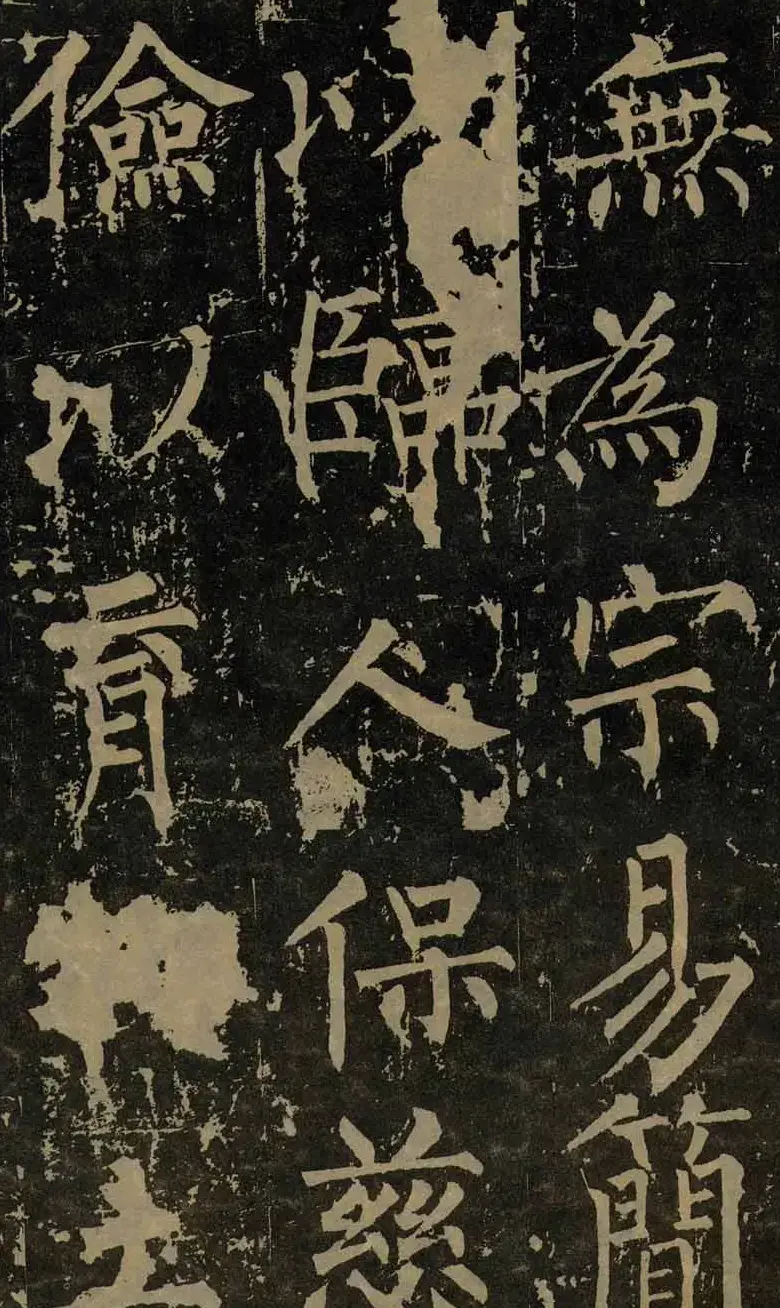 無為宗易簡
以臨人保慈
儉以育